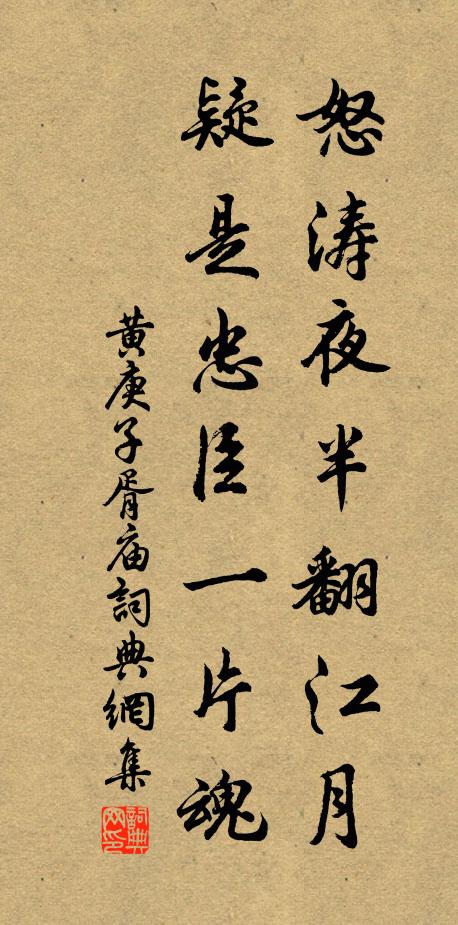 怒涛夜半翻江月
疑是忠臣一片魂
黄庚子胥庙詞典網集
詞典网印